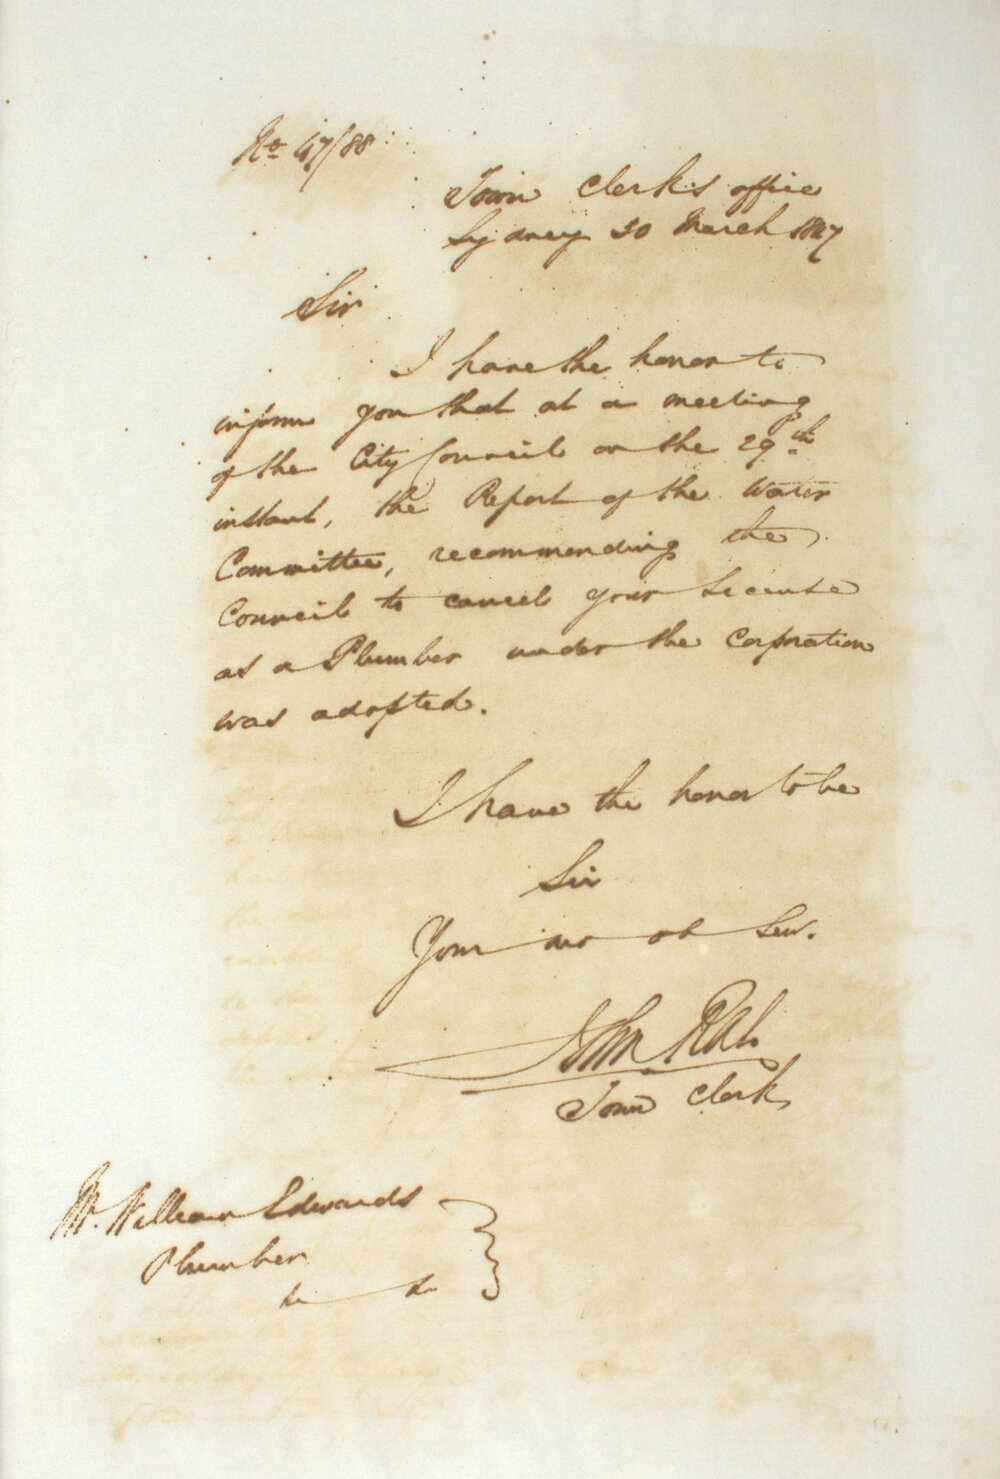 No 47/88
Town Clerk's office
Sydney 30 March 1847
Sir
I have the honor to
inform you that at a meeting
of the City Council on the 29th
instant, the Report of the Water
Committee, recommending the
Council to cancel your License
as a Plumber under the Corporation
was adopted.
I have the honor to be
Sir
Your mo ob Serv.
John Rae
Town Clerk
Mr. William Edwards
Plumber